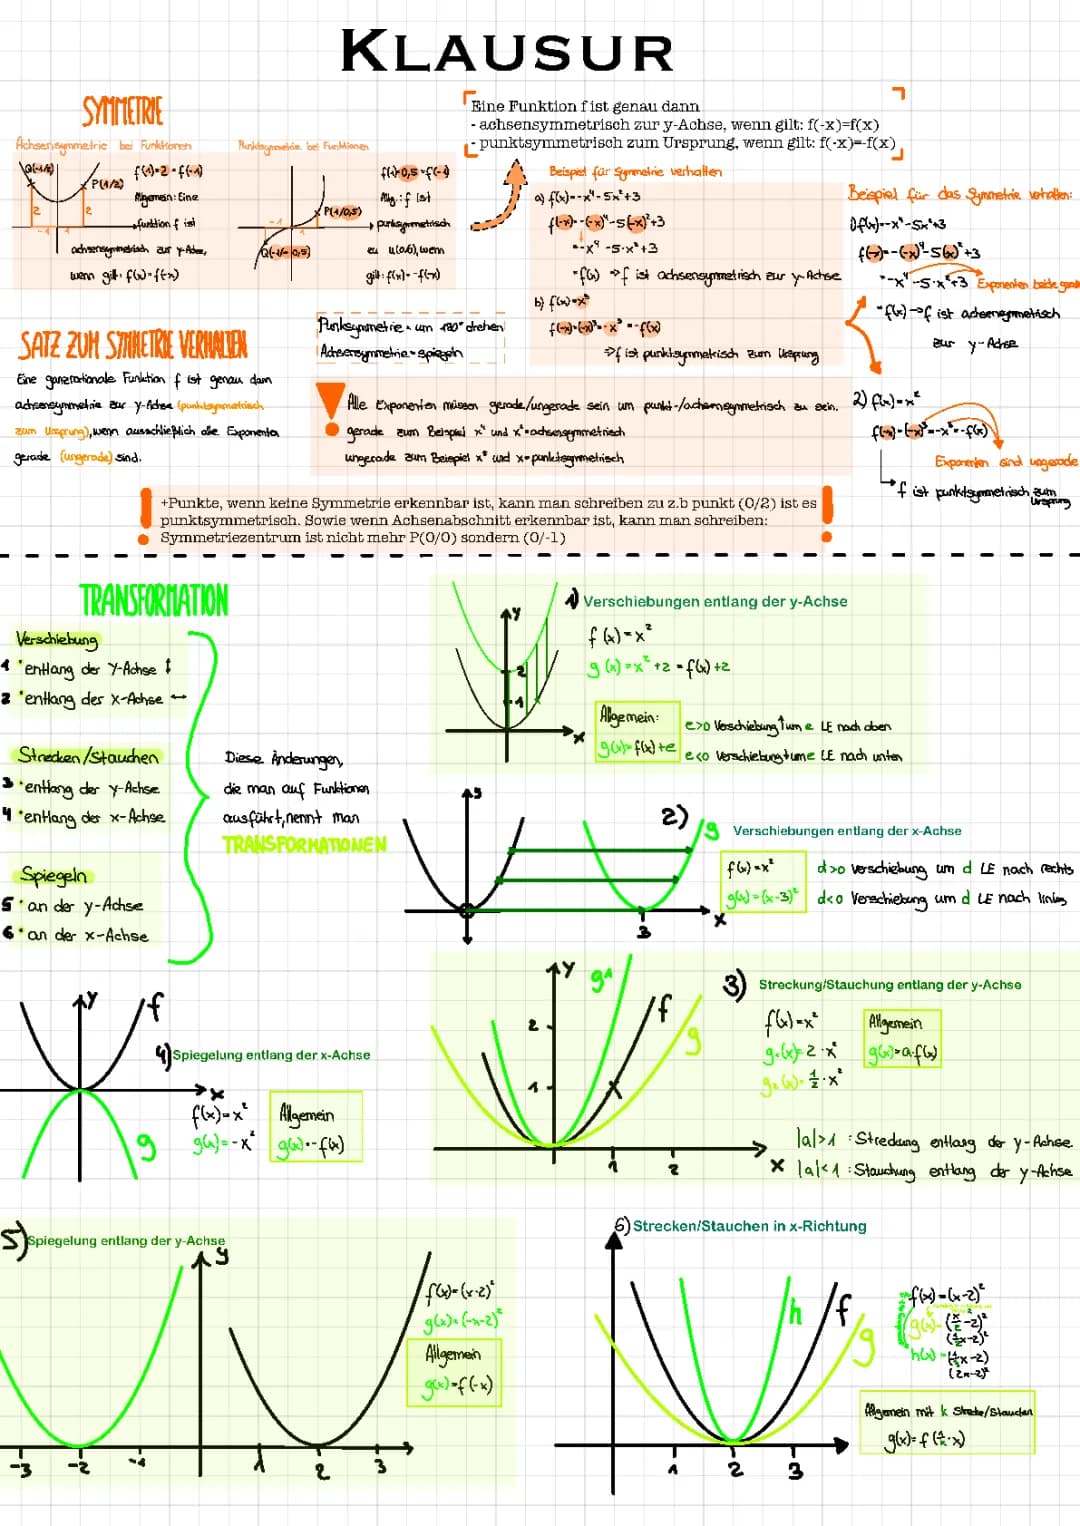 KLAUSUR
SYMMETRIE
Eine Funktion f ist genau dann
- achsensymmetrisch zur y-Achse, wenn gilt: f(-x)=f(x)
- punktsymmetrisch zum Ursprung, wenn gilt: f(-x)=-f(x)
Achsensymmetrie bei Funktionen
Q(-1/2)
P(1/2)
2
2
-1
1
f(1)=2=f(-1)
Allgemein: Eine
funktion f ist
achsensymmetrisch zur y-Achse,
wenn gilt: f(x)=f(-x)
Punktsymmetrie bei Funktionen
-1
1
P(1/0,5)
Q(-1/-0,5)
f(1)=0,5=f(-1)
Allg.: f ist
punktsymmetrisch
zu u(0,0), wenn
gilt: f(x)=-f(-x)
Beispiel für Symmetrie verhalten
a) f(x)=-x⁴-5x²+3
f(-x)=-(-x)⁴-5(-x)²+3
=-x⁴-5·x²+3
=f(x) ⇒f ist achsensymmetrisch zur y-Achse
b) f(x)=x³
f(-x)=(-x)³=-x³=-f(x)
⇒f ist punktsymmetrisch zum Ursprung
Beispiel für das Symmetrie verhalten:
1) f(x)=-x⁴-5x²+3
f(-x)=-(-x)⁴-5(-x)²+3
=-x⁴-5·x²+3 Exponenten beide gerade
=f(x)→f ist achsensymmetrisch
zur y-Achse
2) f(x)=x³
f(-x)=(-x)³=-x³=-f(x)
Exponenten sind ungerade
f ist punktsymmetrisch zum
Ursprung
Punksymmetrie = um 180° drehen
Achsensymmetrie = spiegeln
SATZ ZUM SYMMETRIE VERHALTEN
Eine ganzrationale Funktion f ist genau dann
achsensymmetrie zur y-Achse (punktsymmetrisch
zum Ursprung), wenn ausschließlich alle Exponenten
gerade (ungerade) sind.
! Alle Exponenten müssen gerade/ungerade sein um punkt-/achsensymmetrisch zu sein.
gerade zum Beispiel x⁴ und x²=achsensymmetrisch
ungerade zum Beispiel x³ und x=punktsymmetrisch
! +Punkte, wenn keine Symmetrie erkennbar ist, kann man schreiben zu z.b punkt (0/2) ist es !
punktsymmetrisch. Sowie wenn Achsenabschnitt erkennbar ist, kann man schreiben:
Symmetriezentrum ist nicht mehr P(0/0) sondern (0/-1)
TRANSFORMATION
Verschiebung
1 • entlang der Y-Achse ↕
2 • entlang der x-Achse ↔
Strecken/Stauchen
3 • entlang der y-Achse
4 • entlang der x-Achse
Spiegeln
5 • an der y-Achse
6 • an der x-Achse
Diese Änderungen,
die man auf Funktionen
ausführt, nennt man
TRANSFORMATIONEN
1) Verschiebungen entlang der y-Achse
y
2
1
x
f(x)=x²
g(x)=x²+2=f(x)+2
Allgemein:
g(x)=f(x)+e
e>0 Verschiebung ↑um e LE nach oben
e<0 Verschiebung↓um e LE nach unten
2)
Verschiebungen entlang der x-Achse
y
g
x
3
f(x)=x²
g(x)=(x-3)²
d>0 Verschiebung um d LE nach rechts
d<0 Verschiebung um d LE nach links
3) Streckung/Stauchung entlang der y-Achse
y
g1
f
g
2
1
1
2
x
f(x)=x²
g₁(x)=2·x²
g₂(x)=½·x²
Allgemein
g(x)=a·f(x)
|a|>1 : Streckung entlang der y-Achse
|a|<1 : Stauchung entlang der y-Achse
y
f
4) Spiegelung entlang der x-Achse
x
g
f(x)=x²
g(x)=-x²
Allgemein
g(x)=-f(x)
5) Spiegelung entlang der y-Achse
y
-3
-2
-1
1
2
3
f(x)=(x-2)²
g(x)=(-x-2)²
Allgemein
g(x)=f(-x)
6) Strecken/Stauchen in x-Richtung
h
f
g
1
2
3
f(x)=(x-2)²
g(x)=(x/2-2)²
(½x-2)²
(2x-2)²
Allgemein mit k Strecken/Stauchen
g(x)=f(1/k·x)